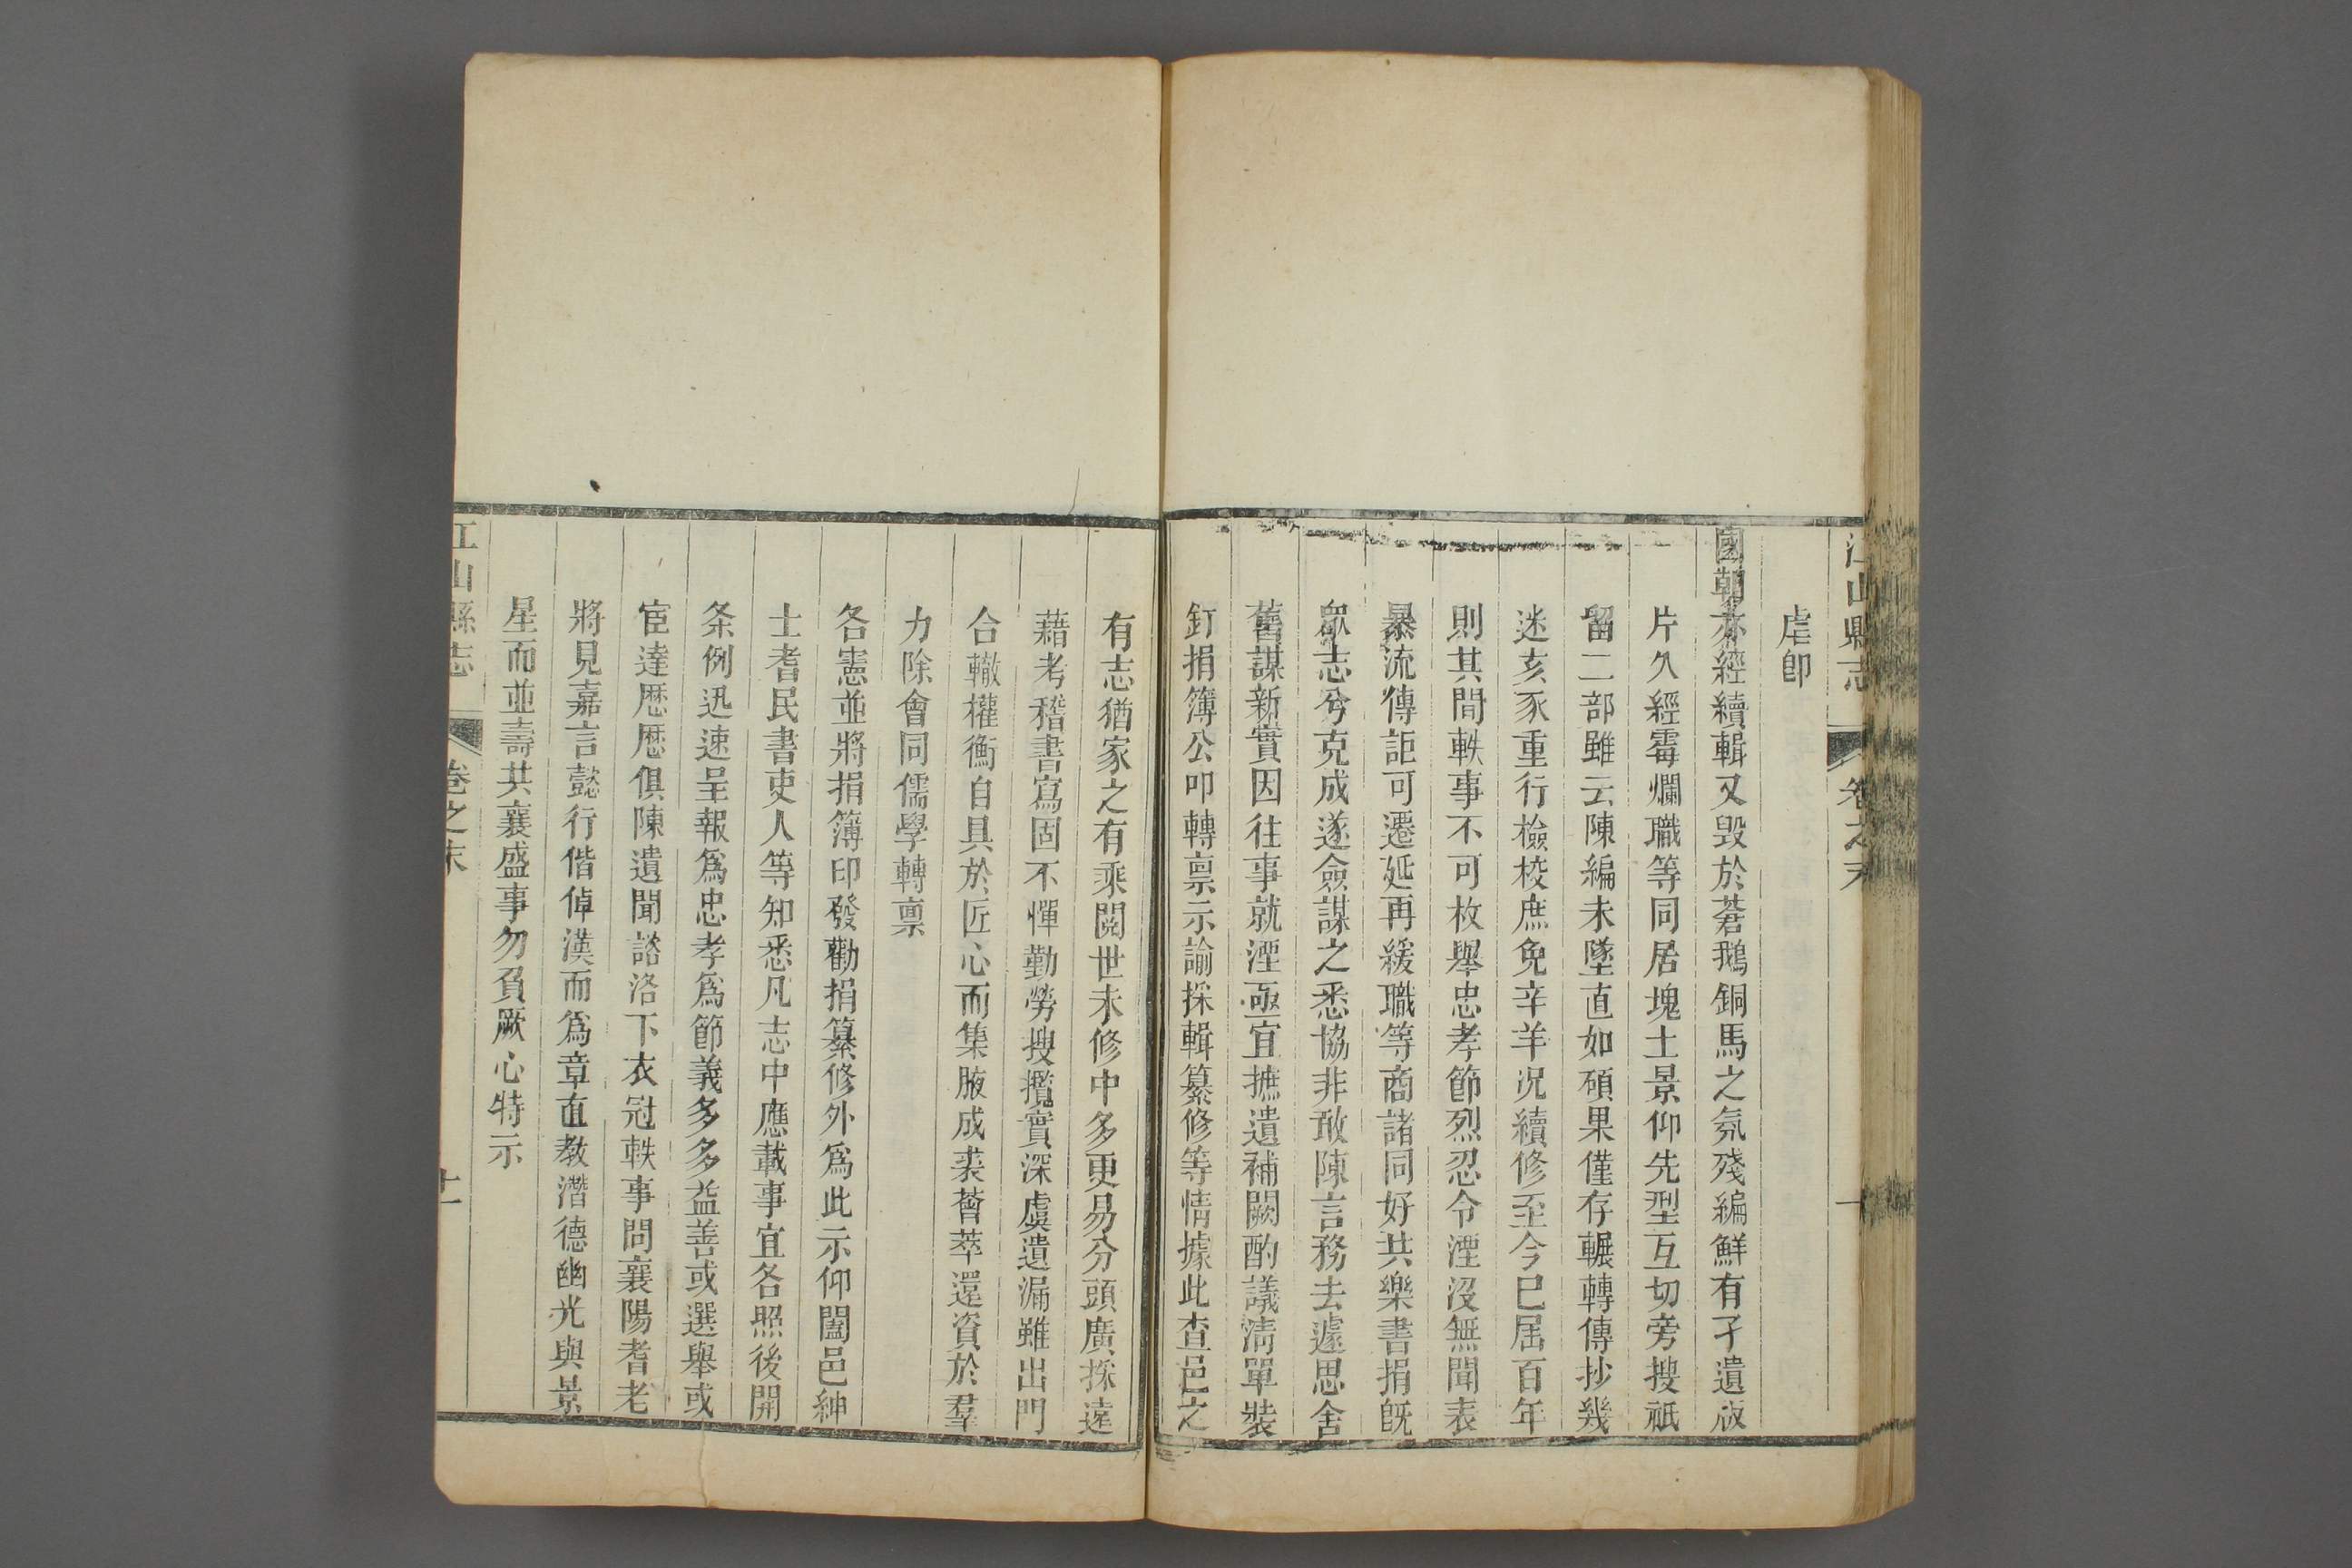 江山縣志 卷之末
虐卽
國朝亦經續輯又毀於蒼鵝銅馬之氛殘編鮮有孑遺板
片久經霉爛職等同居塊土景仰先型互切旁搜祇
留二部雖云陳編未墜直如碩果僅存輾轉傳抄幾
迷亥豕重行檢校庶免辛羊況續修至今已屆百年
則其間軼事不可枚舉忠孝節烈忍令湮沒無聞表
暴流傳詎可遷延再緩職等商諸同好共樂書捐旣
眾志兮克成遂僉謀之悉協非敢陳言務去遽思舍
舊謀新實因往事就湮亟宜摭遺補闕酌議淸單裝
釘捐簿公叩轉禀示諭採輯纂修等情據此查邑之
有志猶家之有乘閱世未修中多更易分頭廣採遠
藉考稽書寫固不憚勤勞搜攬實深虞遺漏雖出門
合轍權衡自具於匠心而集腋成裘薈萃還資於羣
力除會同儒學轉禀
各憲並將捐簿印發勸捐纂修外爲此示仰闔邑紳
士耆民書吏人等知悉凡志中應載事宜各照後開
条例迅速呈報爲忠孝爲節義多多益善或選舉或
宦達歴歴俱陳遺聞諮洛下衣冠軼事問襄陽耆老
將見嘉言懿行偕倬漢而爲章直教潛德幽光與景
星而並壽共襄盛事勿負厥心特示
江山縣志 卷之末 十一